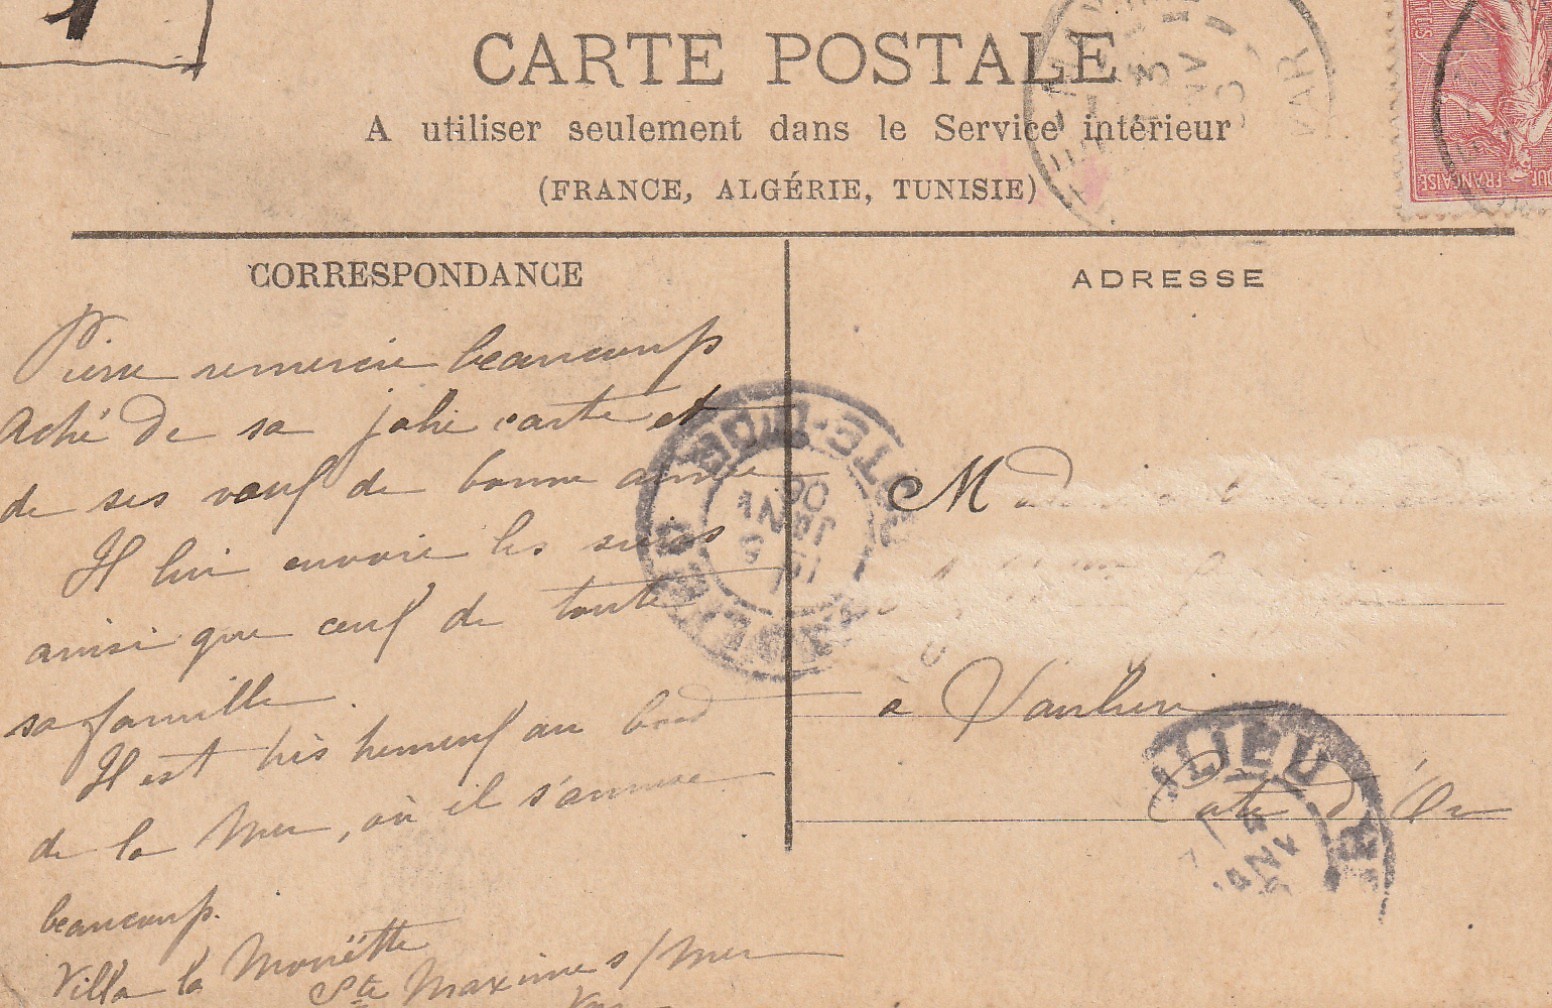 CARTE POSTALE
A utiliser seulement dans le Service intérieur
(FRANCE, ALGÉRIE, TUNISIE)
CORRESPONDANCE
ADRESSE
Pierre remercie beaucoup
Aché de sa jolie carte et
de ses vœuf de bonne année
Il lui envoie les siens
ainsi que ceuf de toute
sa famille.
Il est très heureuf au bord
de la Mer, où il s'amuse
beaucoup.
Villa la Mouëtte
Ste Maxime s/Mer
Var
M
a
Côte d'Or
VAR
JANV
CÔTE-D'OR
FRANÇAISE